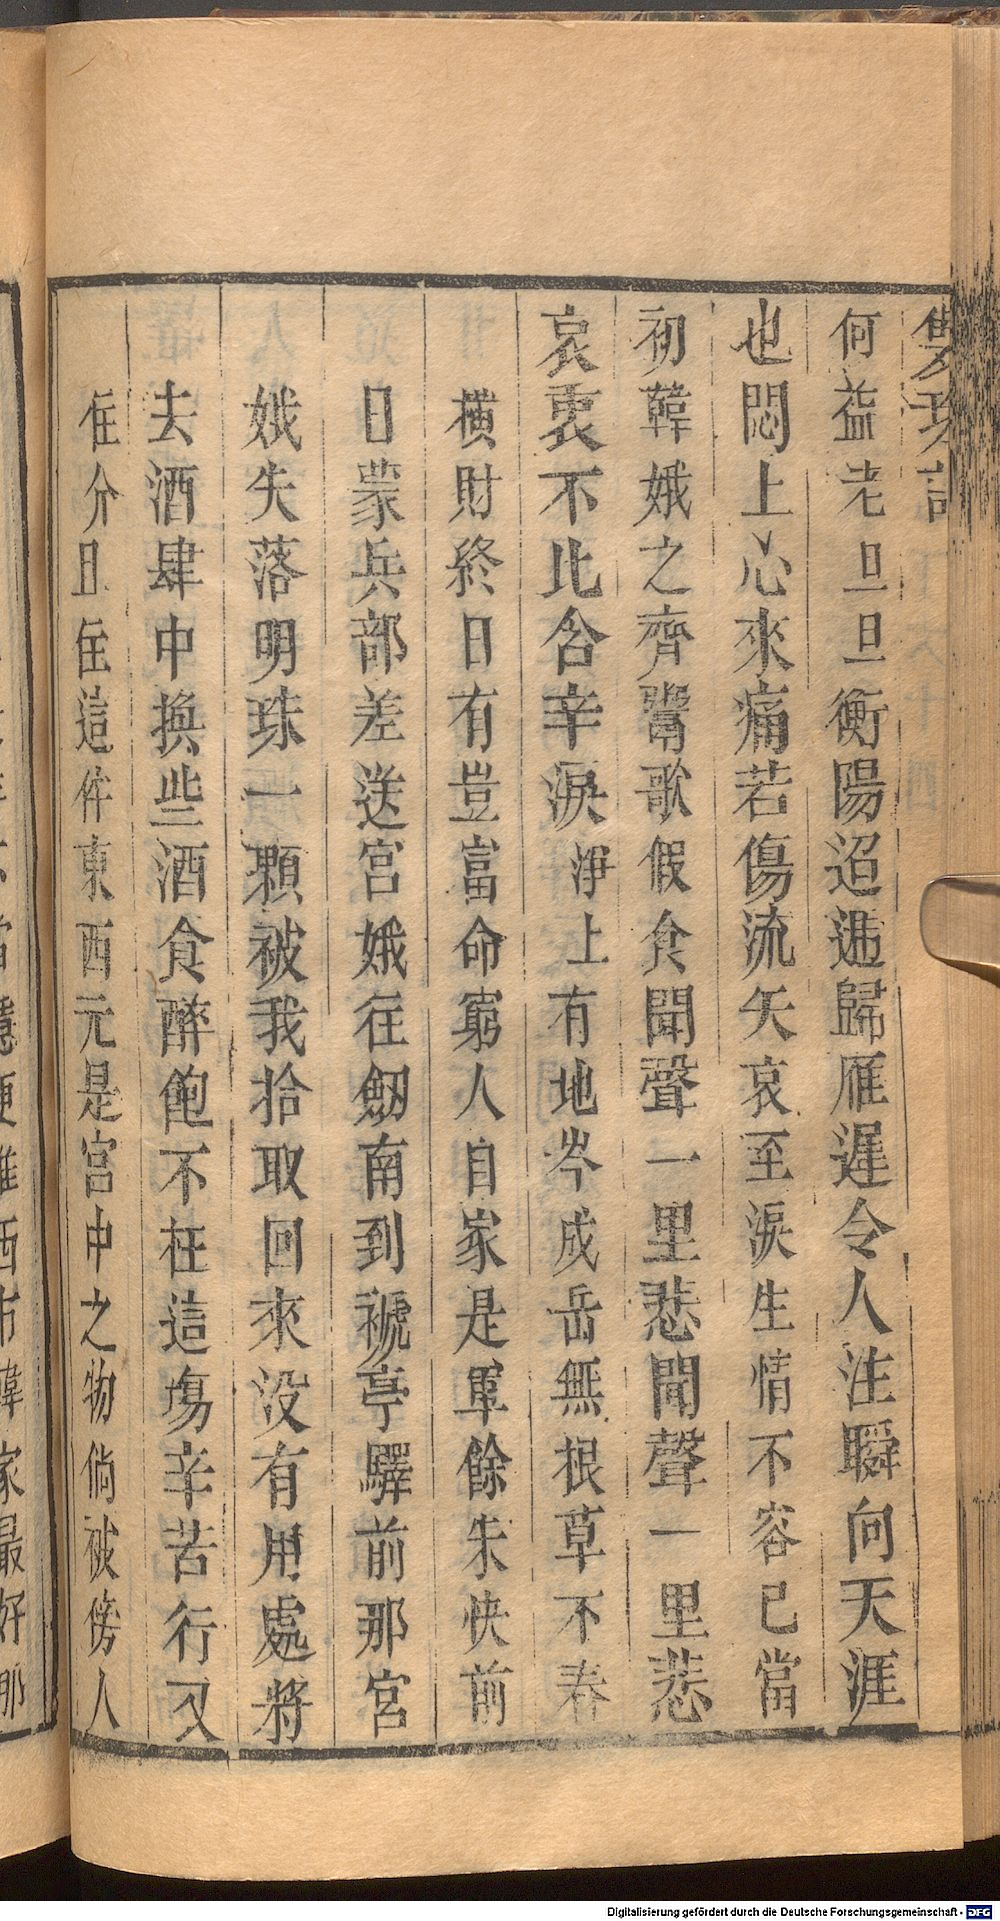 雙珠記
何益老旦旦衡陽迢遞歸雁遲令人注瞬向天涯
也悶上心來痛若傷流矢哀至淚生情不容已當
初韓娥之齊鬻歌假食聞聲一里悲聞聲一里悲
哀衷不比含辛淚淨上有地岑成岳無根草不春
橫財終日有豈富命窮人自家是軍餘朱快前
日蒙兵部差送宮娥往劔南到褫亭驛前那宮
娥失落明珠一顆被我拾取回來没有用處將
去酒肆中換些酒食醉飽不枉這塲辛苦行又
住介且住這件東西元是宮中之物倘被傍人
Digitalisierung gefördert durch die Deutsche Forschungsgemeinschaft - DFG